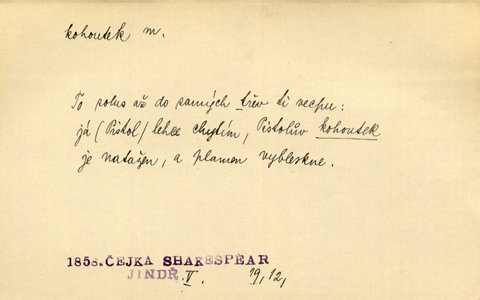 kohoutek m.
To solus až do samých třev ti vechu:
já (Pistol) lehce chytím, Pistolův kohoutek
je natažen, a plamen vybleskne.
1858. ČEJKA SHAKESPEAR
JINDŘ. V. 19, 12,